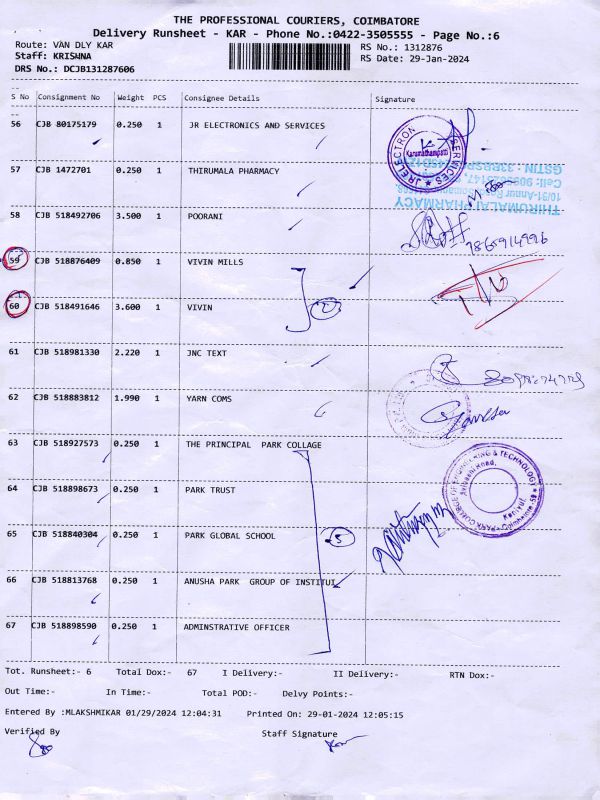 THE PROFESSIONAL COURIERS, COIMBATORE
Delivery Runsheet - KAR - Phone No.:0422-3505555 - Page No.:6
Route: VAN DLY KAR
Staff: KRISHNA
DRS No.: DCJB131287606
RS No.: 1312876
RS Date: 29-Jan-2024
S No Consignment No Weight PCS Consignee Details Signature
56 CJB 80175179 0.250 1 JR ELECTRONICS AND SERVICES
JR ELECTRONICS SERVICES
Karumathampatti
57 CJB 1472701 0.250 1 THIRUMALA PHARMACY
THIRUMALAI PHARMACY
58 CJB 518492706 3.500 1 POORANI
59 CJB 518876409 0.850 1 VIVIN MILLS
60 CJB 518491646 3.600 1 VIVIN
2
61 CJB 518981330 2.220 1 JNC TEXT
62 CJB 518883812 1.990 1 YARN COMS
63 CJB 518927573 0.250 1 THE PRINCIPAL PARK COLLAGE
64 CJB 518898673 0.250 1 PARK TRUST
65 CJB 518840304 0.250 1 PARK GLOBAL SCHOOL
5
66 CJB 518813768 0.250 1 ANUSHA PARK GROUP OF INSTITUI
67 CJB 518898590 0.250 1 ADMINSTRATIVE OFFICER
Tot. Runsheet:- 6 Total Dox:- 67 I Delivery:- II Delivery:- RTN Dox:-
Out Time:- In Time:- Total POD:- Delvy Points:-
Entered By :MLAKSHMIKAR 01/29/2024 12:04:31 Printed On: 29-01-2024 12:05:15
Verified By Staff Signature